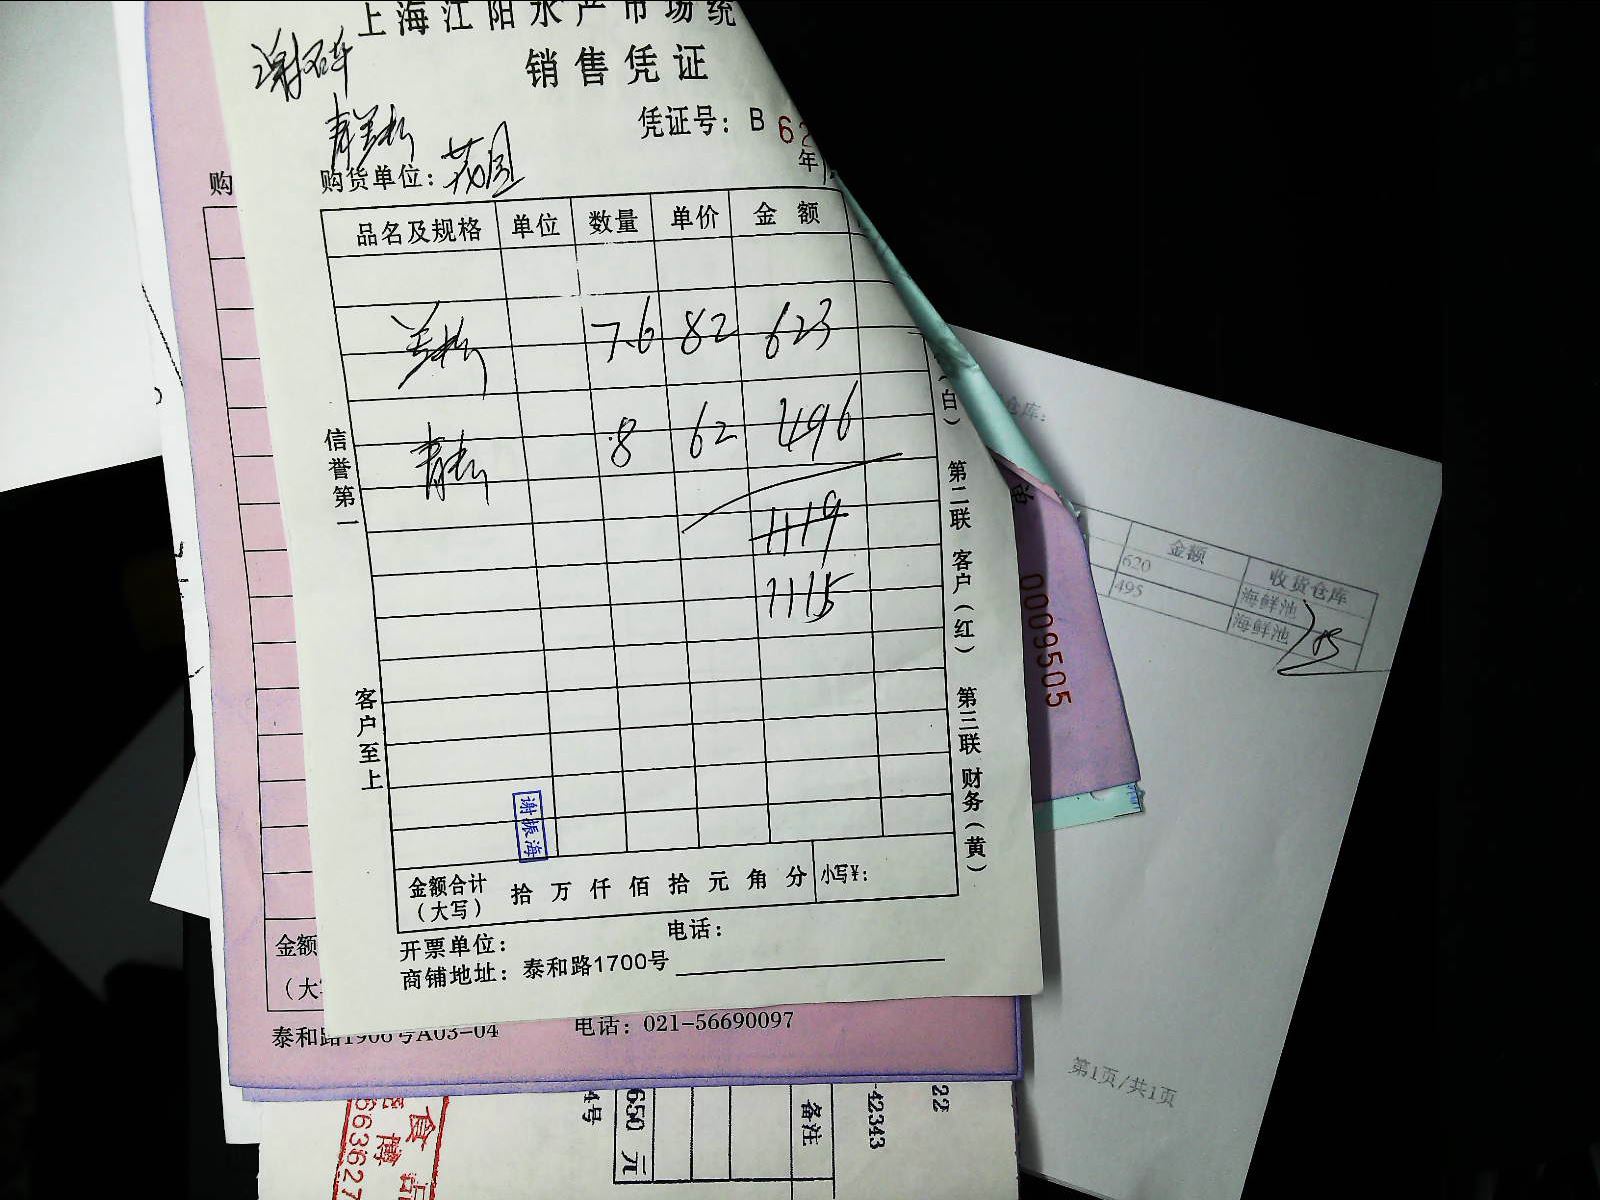 上海江阳水产市场统
销售凭证
凭证号：B 62
年
购货单位：
品名及规格 单位 数量 单价 金额
7.6 82 623
8 62 496
1119
1115
信誉第一
客户至上
（白）第二联 客户（红）第三联 财务（黄）
谢振海
金额合计（大写） 拾 万 仟 佰 拾 元 角 分 小写¥：
开票单位： 电话：
商铺地址：泰和路1700号
购
金额
（大
泰和路1906号A03-04 电话：021-56690097
0009505
仓库：
金额 收货仓库
620 海鲜池
495 海鲜池
第1页/共1页
4号
650 元
备注
-42343
22
食品
博
663627